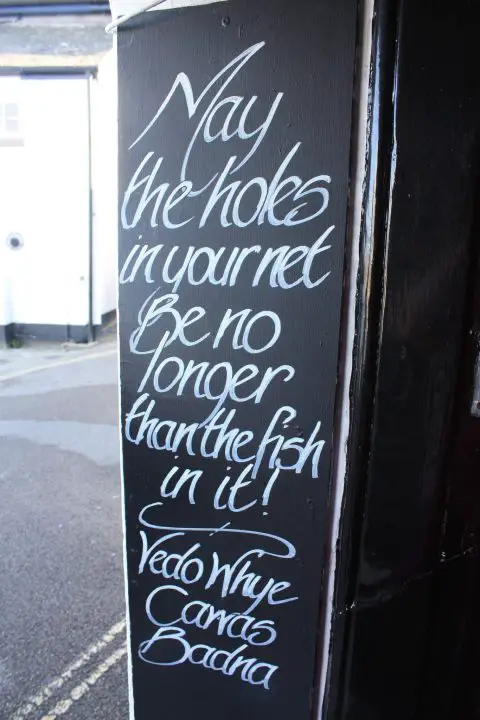 May
the holes
in your net
Be no
longer
than the fish
in it!
Vedo Whye
Carvas
Badna